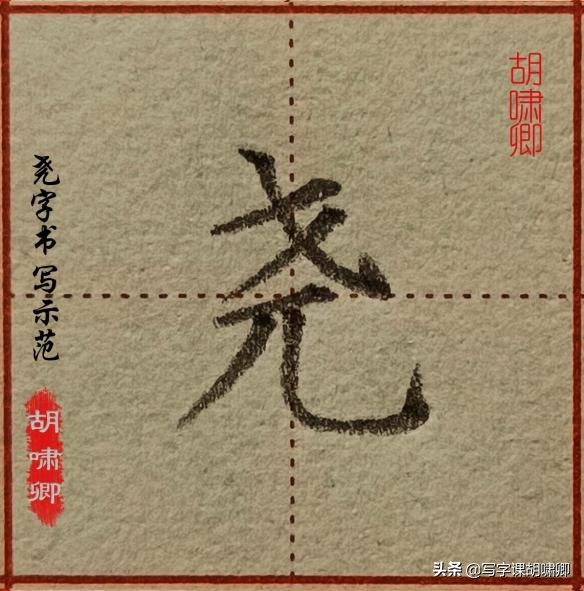 胡啸卿
尧
尧字书写示范
胡啸卿
头条 @写字课胡啸卿